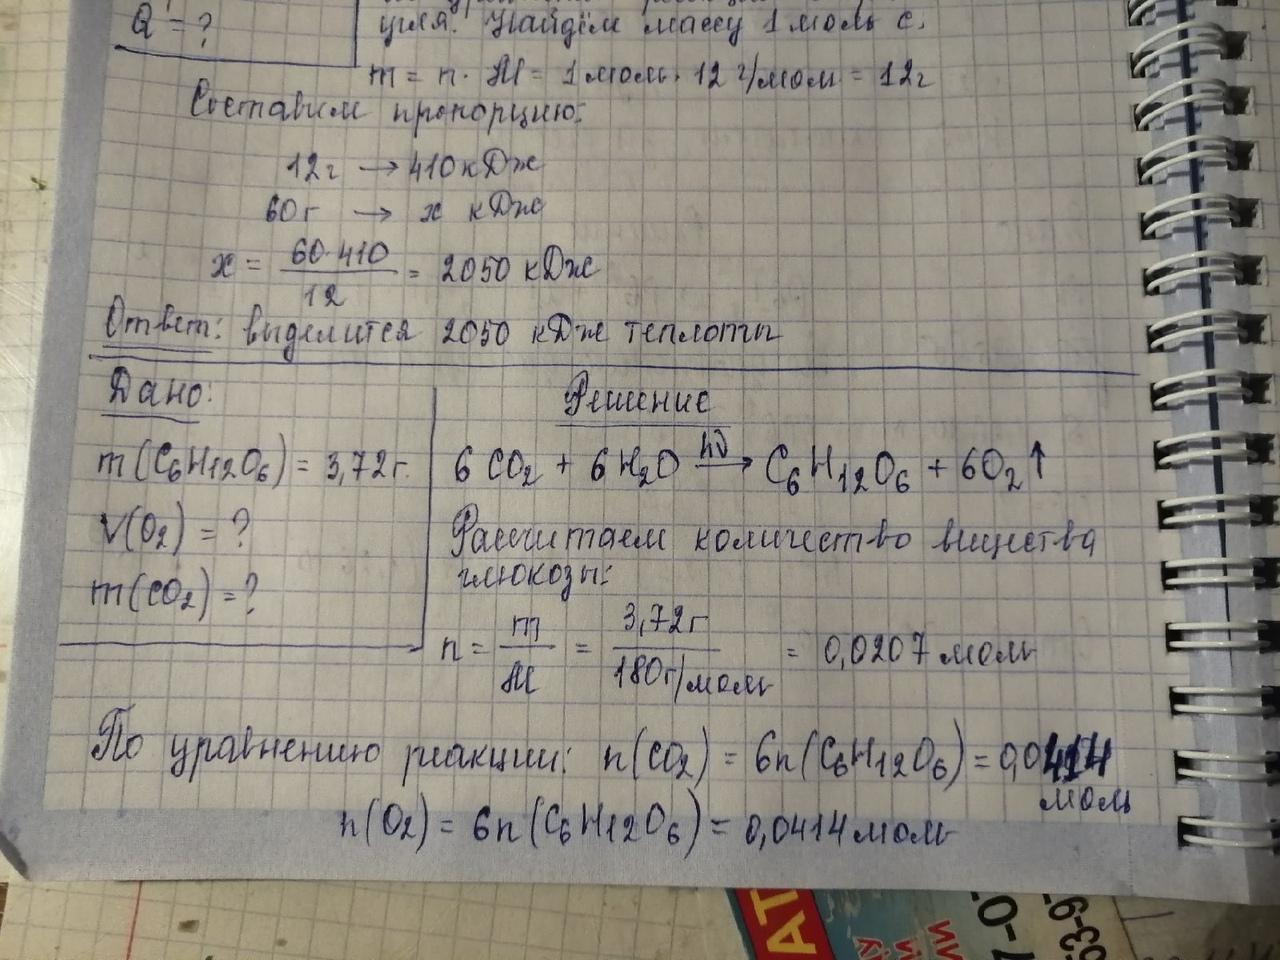 Q = ?
угля. Найдём массу 1 моль C.
m = n · M = 1 моль · 12 г/мол = 12г
Составим пропорцию:
12г → 410 кДж
60г → x кДж
x = 60·410 / 12 = 2050 кДж
Ответ: выделится 2050 кДж теплоты
Дано:
m(C6H12O6) = 3,72г.
V(O2) = ?
m(CO2) = ?
Решение
6 CO2 + 6 H2O hν → C6H12O6 + 6O2↑
Рассчитаем количество вещества
глюкозы:
n = m / M = 3,72г / 180г/моль = 0,0207 моль
По уравнению реакции: n(CO2) = 6n(C6H12O6) = 0,0414
моль
n(O2) = 6n(C6H12O6) = 0,0414 моль
АТ
7-0
63-9